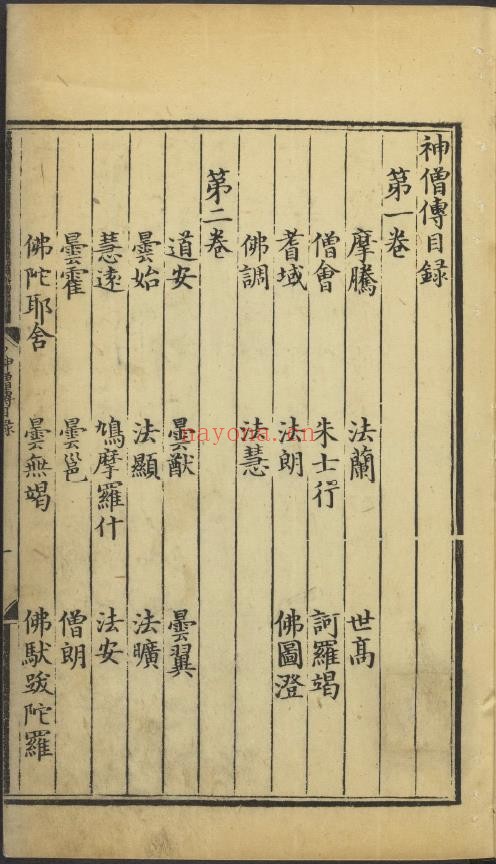 神僧傳目録
第一卷
摩騰 法蘭 世髙
僧會 朱士行 訶羅竭
耆域 法朗 佛圖澄
佛調 法慧
第二卷
道安 曇猷 曇翼
曇始 法顯 法曠
慧遠 鳩摩羅什 法安
曇霍 曇邕 僧朗
佛陀耶舍 曇無竭 佛馱跋陀羅
神僧傳目録
一
nayona.cn